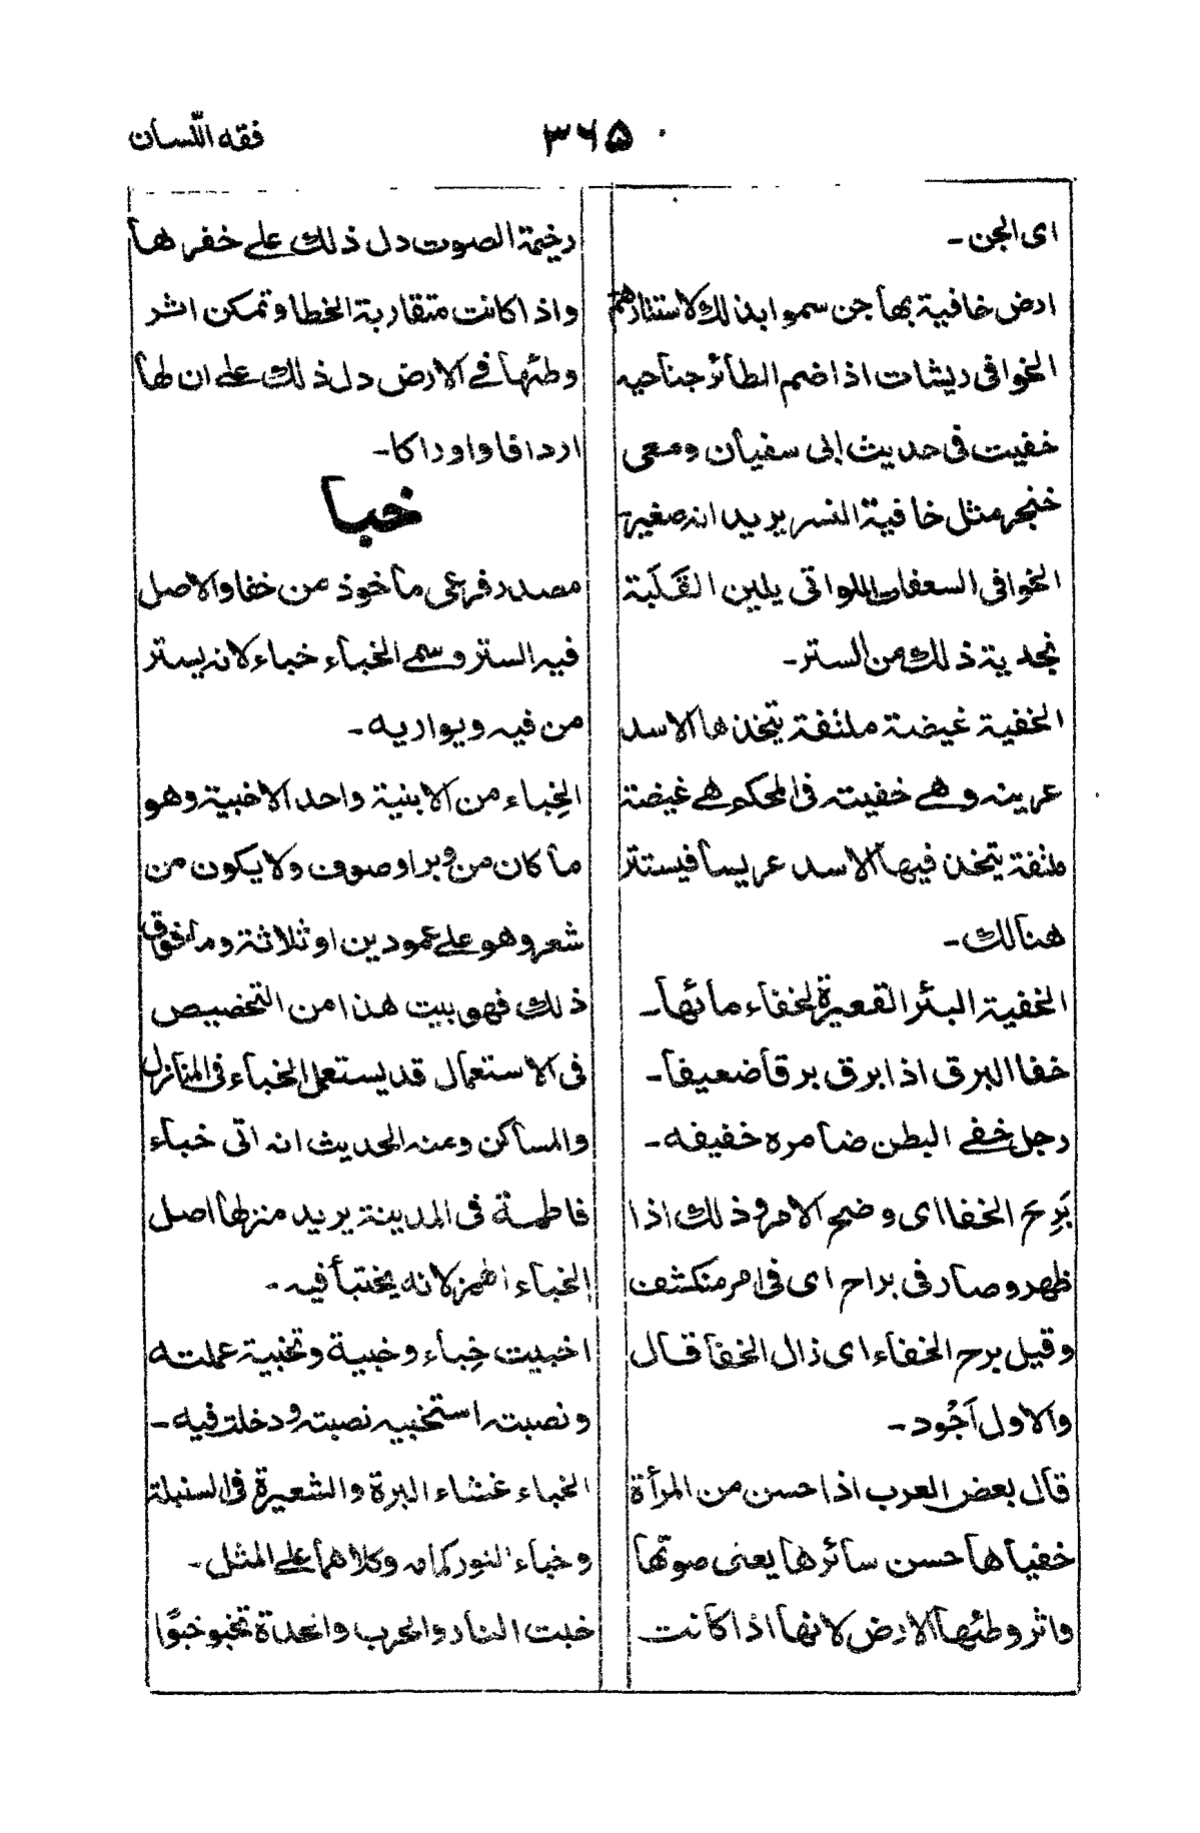 فقه اللّسان
۳۶۵
ای الجن ـ
ارض خافیة بها جن سموا بذلك لاستتارهم
الخوافی ریشات اذا ضم الطائر جناحیه
خفیت فی حدیث ابی سفیان ومعی
خنجر مثل خافیة النسر یرید انه صغیر
الخوافی السعفات اللواتی یلین القَلَبَة
نجدیة ذلك من الستر ـ
الخفیة غیضة ملتفة یتخذها الاسد
عرینه وهی خفیته فی المحکم هی غیضة
ملتفة یتخذ فیها الاسد عریسا فیستتر
هنالك ـ
الخفیة البئر القعیرة لخفاء مائها ـ
خفا البرق اذا برق برقا ضعیفا ـ
رجل خفی البطن ضامره خفیفه ـ
بَرِحَ الخفا ای وضح الامر وذلك اذا
ظهر وصار فی براح ای فی امر منکشف
وقیل برح الخفاء ای زال الخفا قال
والاول اَجْود ـ
قال بعض العرب اذا حسن من المرأة
خفیاها حسن سائرها یعنی صوتها
واثر وطئها الارض لانها اذا کانت
رخیمة الصوت دل ذلك علی خفرها
واذا کانت متقاربة الخطا وتمکن اثر
وطئها فی الارض دل ذلك علی ان لها
اردافا واوراکا ـ
خبا
مصدر فرعی ماخوذ من خفا والاصل
فیه الستر وسمی الخباء خباء لانه یستر
من فیه ویواریه ـ
الخِباء من الابنیة واحد الاخبیة وهو
ما کان من وبر او صوف ولا یکون من
شعر وهو علی عمودین او ثلاثة وما فوق
ذلك فهو بیت هذا من التخصیص
فی الاستعمال قد یستعمل الخباء فی المنازل
والمساکن ومنه الحدیث انه اتی خباء
فاطمة فی المدینة یرید منزلها اصل
الخباء الهمز لانه یختبأ فیه ـ
اخبیت خِباء وخبیة وتخبیة عملته
ونصبته استخبیه نصبته ودخلت فیه ـ
الخباء غشاء البرة والشعیرة فی السنبلة
وخباء النور کمامه وکلاهما علی المثل ـ
خبت النار والحرب والحدة تخبو خبوًّا